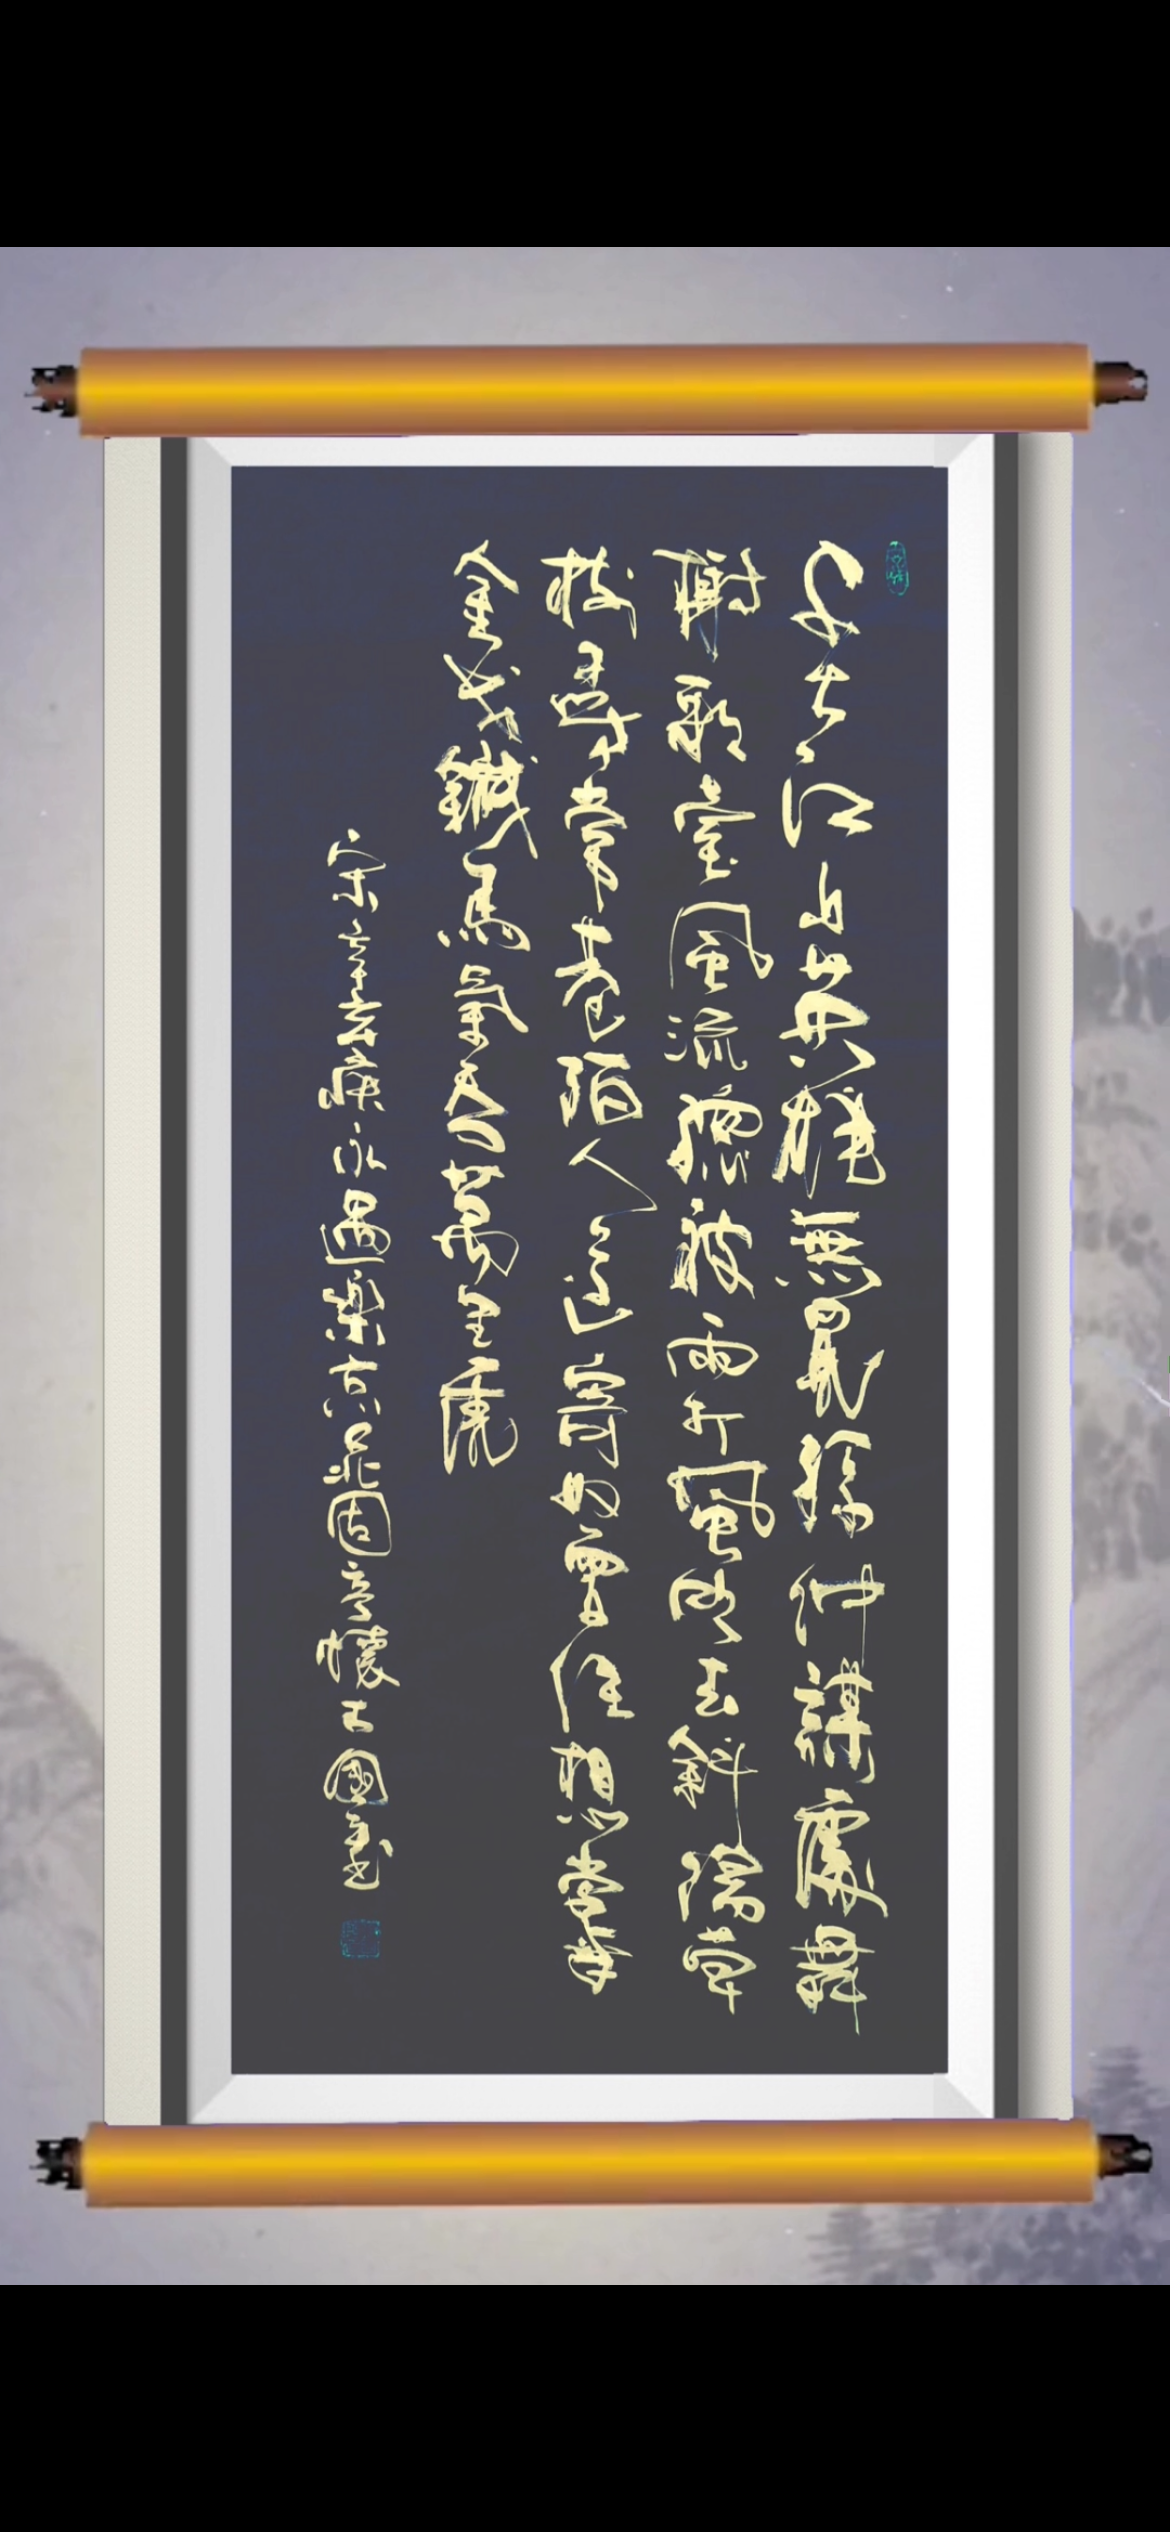 千古江山英雄無覓孫仲謀處舞
榭歌臺風流總被雨打風吹去斜陽草
樹尋常巷陌人道寄奴曾住想當年
金戈鐵馬氣吞萬里虎
宋辛棄疾永遇樂京口北固亭懷古國